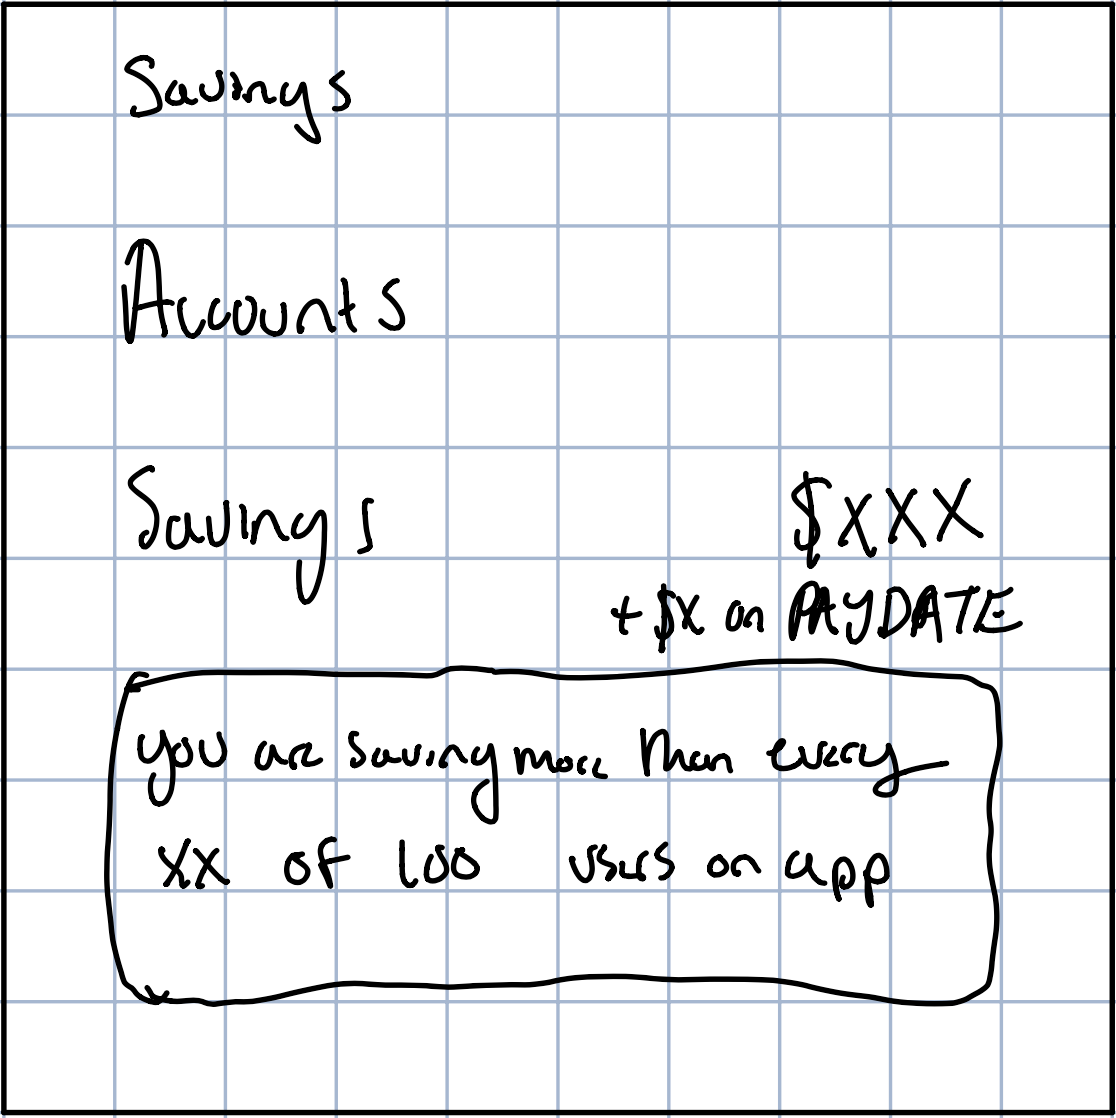 Savings
Accounts
Savings $XXX
+$X on PAYDATE
you are saving more than every
XX of 100 users on app